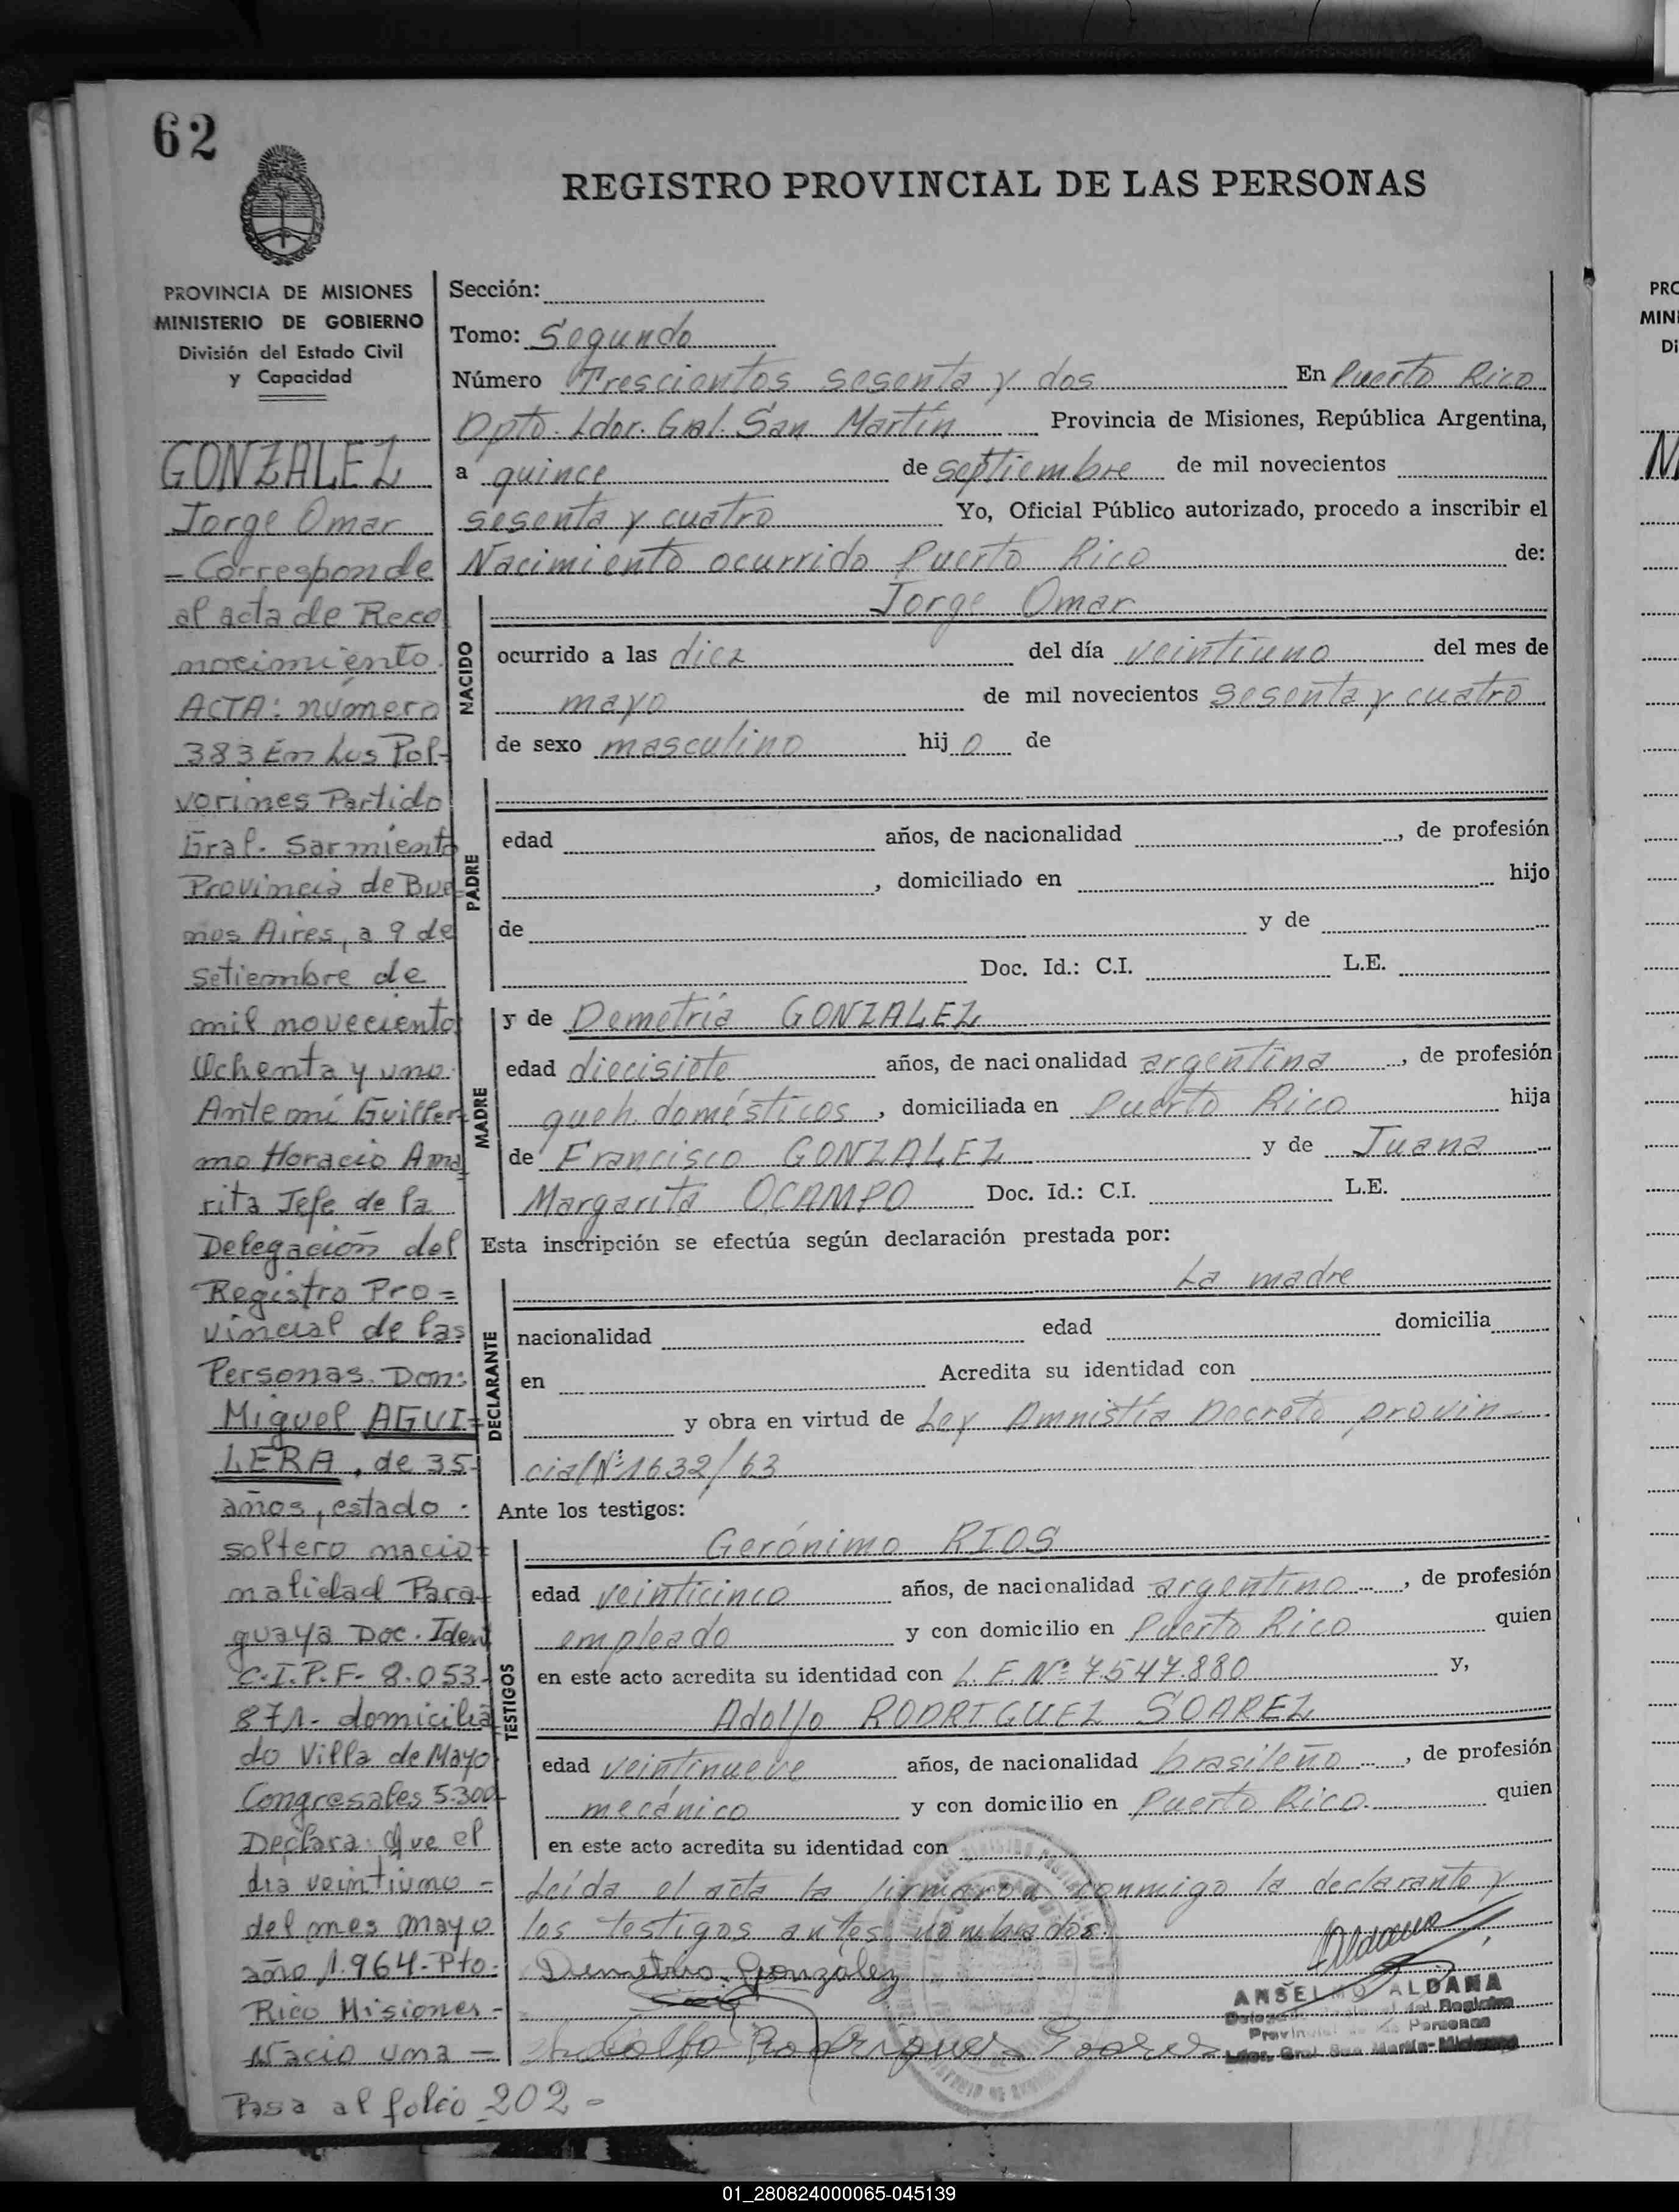 62
REGISTRO PROVINCIAL DE LAS PERSONAS
PROVINCIA DE MISIONES
MINISTERIO DE GOBIERNO
División del Estado Civil
y Capacidad
GONZALEZ
Jorge Omar
- Corresponde
al acta de Reco
nocimiento.
ACTA: número
383 En Los Pol-
vorines Partido
Gral. Sarmiento
Provincia de Bue
nos Aires, a 9 de
setiembre de
mil novecientos
Ochenta y uno.
Ante mí Guiller-
mo Horacio Ama
rita Jefe de la
Delegación del
Registro Pro=
vincial de las
Personas. Don:
Miguel AGUI=
LERA, de 35-
años, estado :
soltero nacio=
nalidad Para-
guaya Doc. Iden
C.I.P.F. 8.053-
871- domicilia
do Villa de Mayo
Congresales 5.300-
Declara: Que el
día veintiuno -
del mes mayo
año 1.964- Pto.
Rico Misiones -
Nacio una -
Pasa al folio 202 -
Sección:
Tomo: Segundo
Número Trescientos sesenta y dos En Puerto Rico
Dpto. Ldor. Gral. San Martín Provincia de Misiones, República Argentina,
a quince de septiembre de mil novecientos
sesenta y cuatro Yo, Oficial Público autorizado, procedo a inscribir el
Nacimiento ocurrido Puerto Rico de:
NACIDO
Jorge Omar
ocurrido a las diez del día veintiuno del mes de
mayo de mil novecientos sesenta y cuatro
de sexo masculino hij o de
PADRE
edad años, de nacionalidad , de profesión
, domiciliado en hijo
de y de
Doc. Id.: C.I. L.E.
MADRE
y de Demetria GONZALEZ
edad diecisiete años, de nacionalidad argentina , de profesión
queh. domésticos , domiciliada en Puerto Rico hija
de Francisco GONZALEZ y de Juana
Margarita OCAMPO Doc. Id.: C.I. L.E.
Esta inscripción se efectúa según declaración prestada por:
DECLARANTE
La madre
nacionalidad edad domicilia
en Acredita su identidad con
y obra en virtud de Ley Amnistía Decreto provin-
cial Nº 1632/63
Ante los testigos:
TESTIGOS
Gerónimo RIOS
edad veinticinco años, de nacionalidad argentino , de profesión
empleado y con domicilio en Puerto Rico quien
en este acto acredita su identidad con L.E. Nº 7.547.880 y,
Adolfo RODRIGUEZ SOAREZ
edad veintinueve años, de nacionalidad brasileño , de profesión
mecánico y con domicilio en Puerto Rico. quien
en este acto acredita su identidad con
Leída el acta la firmaron conmigo la declarante y
los testigos antes nombrados.
Demetria Gonzalez
Adolfo Rodrigues Soares
ANSELMO ALDANA
Provincial de las Personas
Ldor. Gral. San Martín - Misiones
PRO
MIN
Di
01_280824000065-045139